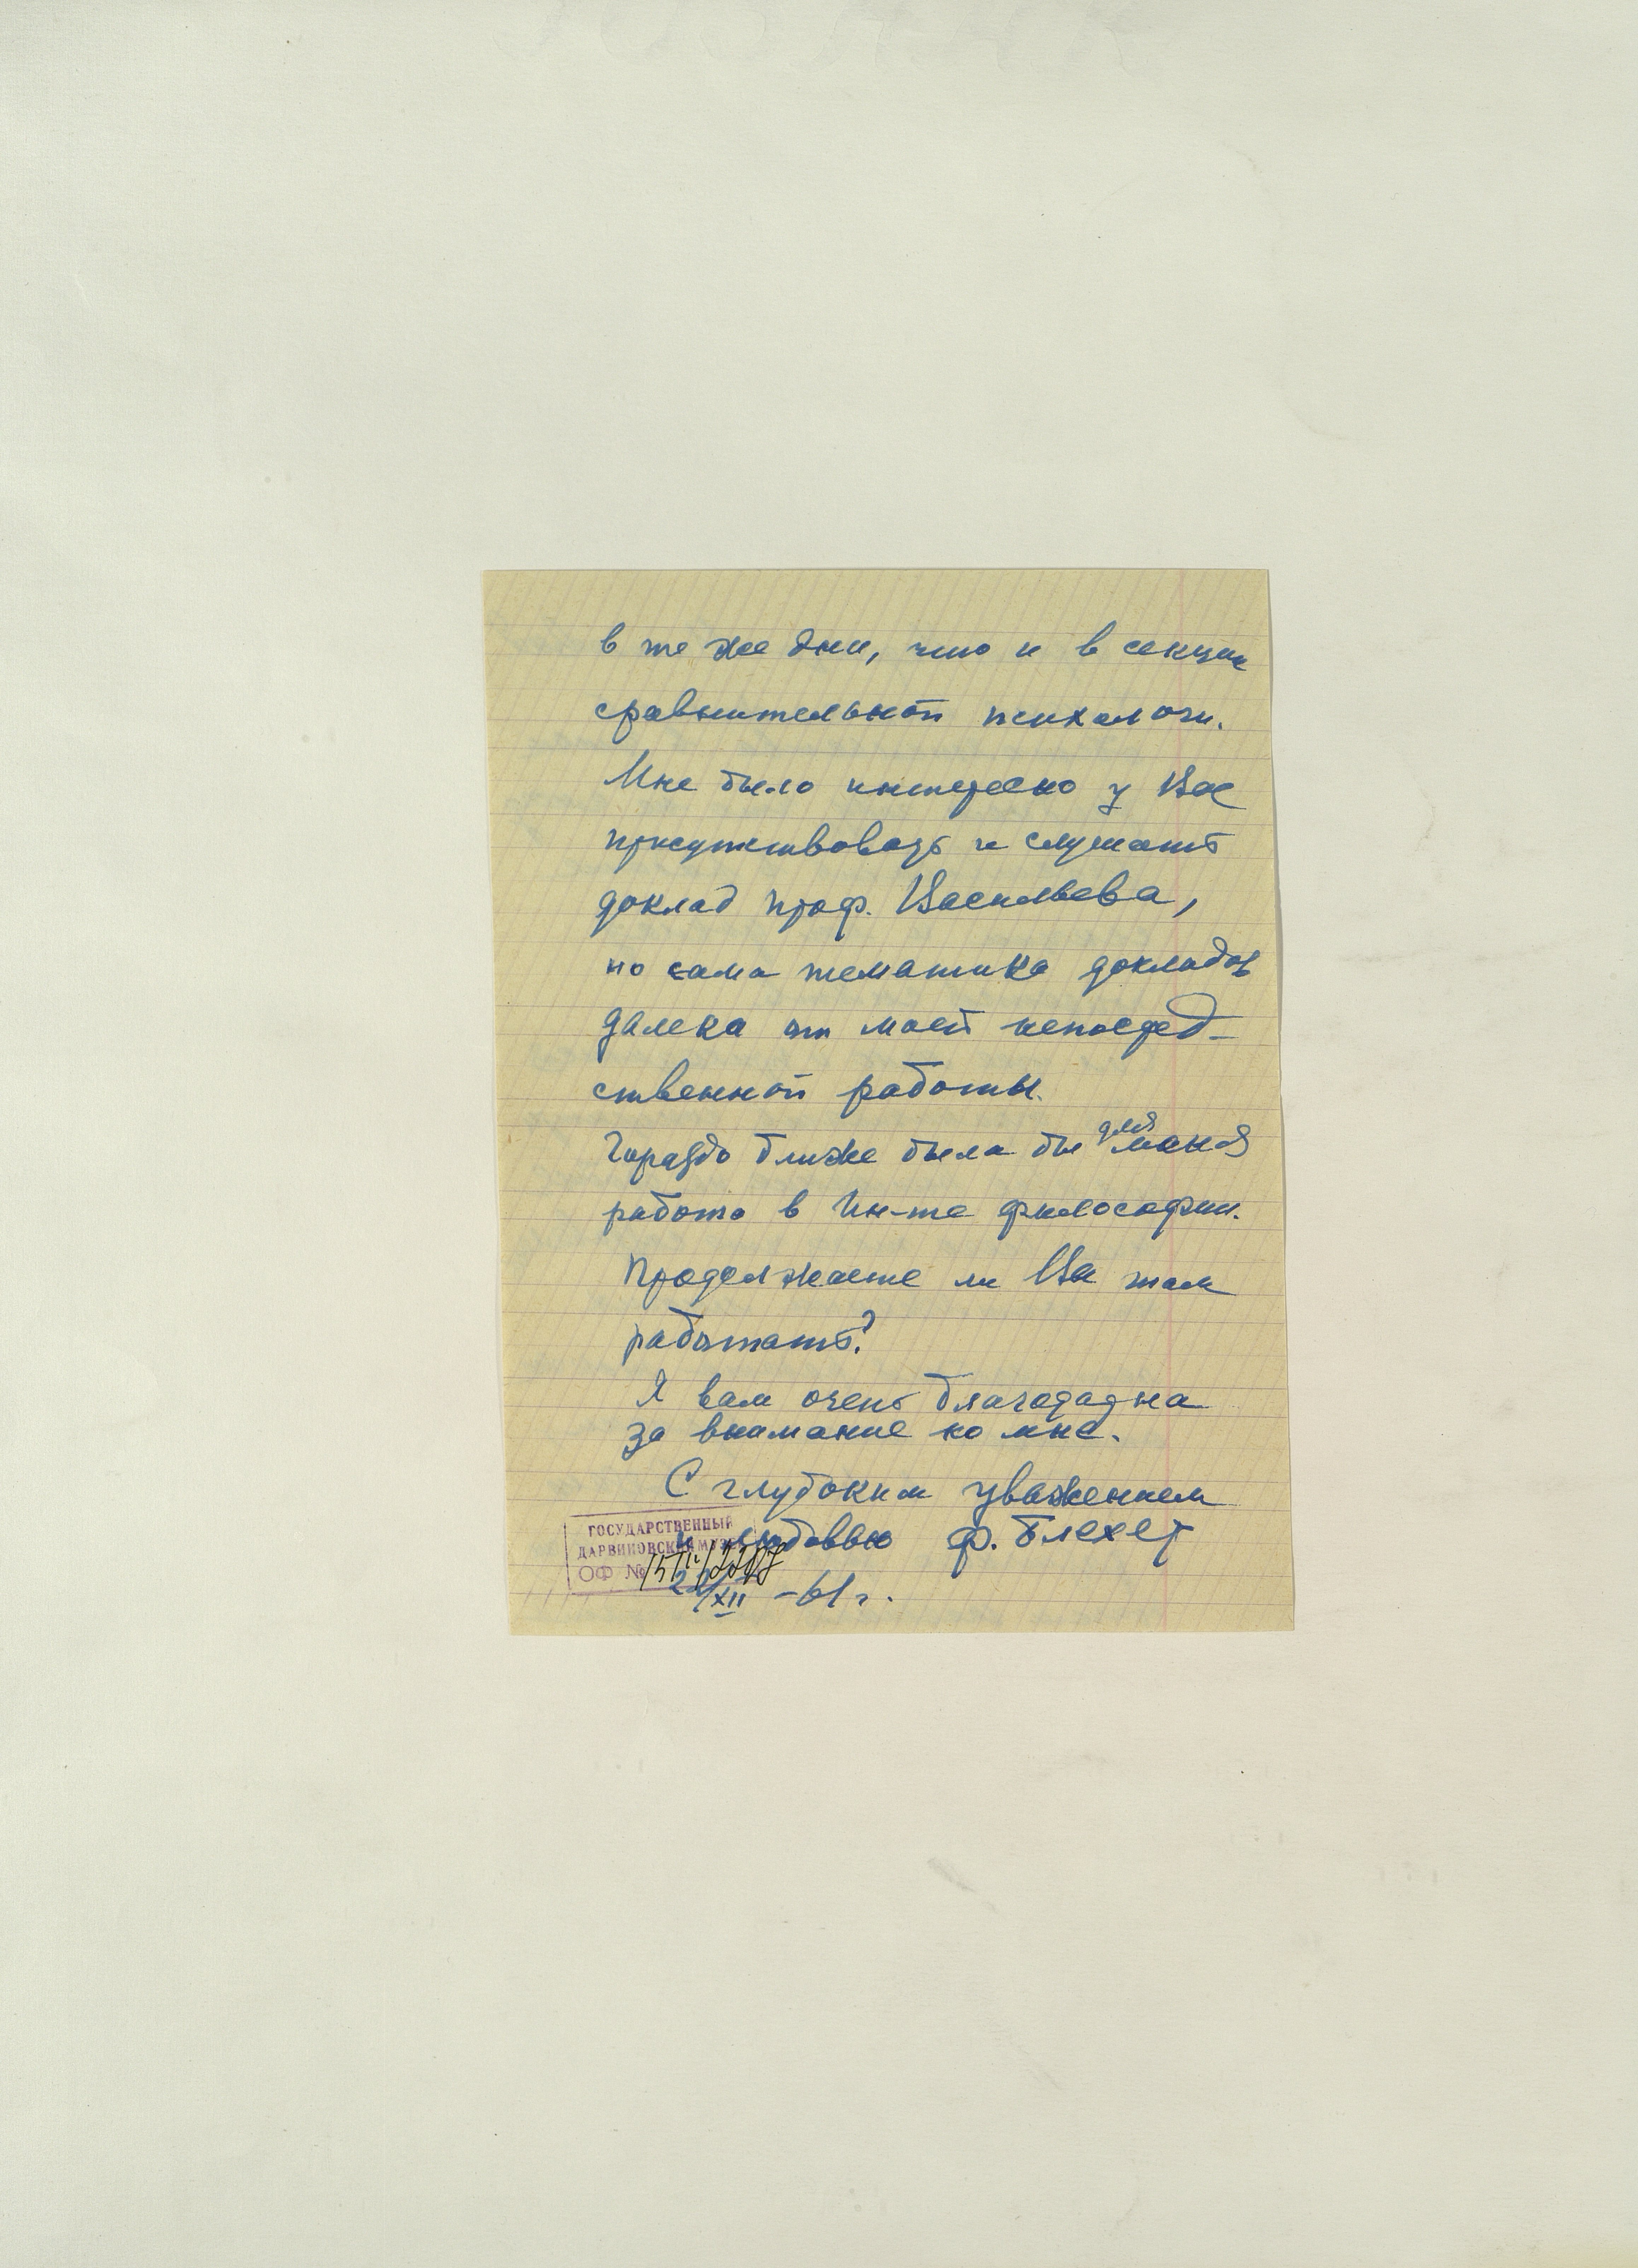 в те же дни, что и в секции
сравнительной психологи.
Мне было интересно у Вас
присутствовать и слушать
доклад проф. Васильева,
но сама тематика докладов
далека от моей непосред-
ственной работы.
Гораздо ближе была бы для меня
работа в Ин-те философии.
Продолжаете ли Вы там
работать?
Я вам очень благодарна
за внимание ко мне.
С глубоким уважением
и любовью Ф. Блехер
/XII -61 г.
ГОСУДАРСТВЕННЫЙ
ДАРВИНОВСКИЙ МУЗЕЙ
ОФ №